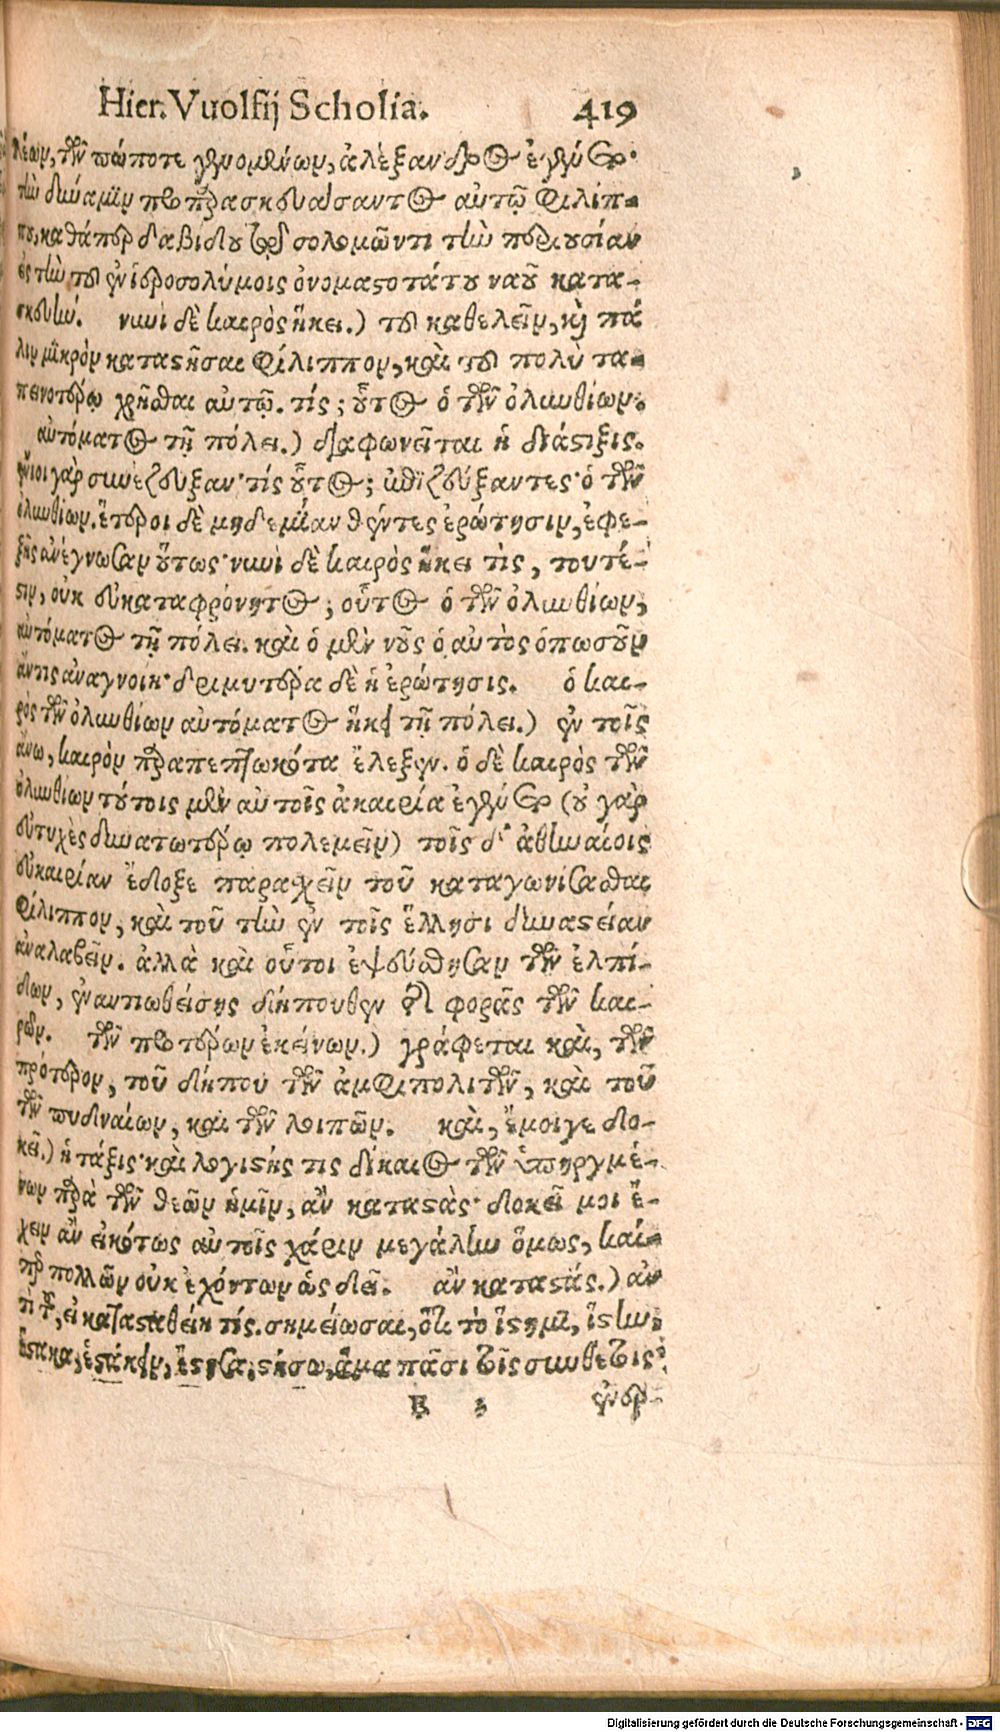 Hier. Vuolfij Scholia. 419
λέων, τῶν πώποτε γενομένων, ἀλέξανδρος ἐγένετο·
τὴν δύναμιν προπαρασκευάσαντος αὐτῷ Φιλίπ-
που, καθάπερ δαβίδου καὶ σολομῶντι τὴν περιουσίαν
ἐς τὴν τοῦ ἐν ἱεροσολύμοις ὀνομαστοτάτου ναοῦ κατα-
σκευήν. νυνὶ δὲ καιρὸς ἥκει.) τοῦ καθελεῖν, καὶ πά
λιν μικρὸν καταστῆσαι Φίλιππον, καὶ τοῦ πολὺ τα-
πεινοτέρῳ χρῆσθαι αὐτῷ. τίς; οὗτος ὁ τῶν ὀλυνθίων.
αὐτόματος τῇ πόλει.) διαφωνεῖται ἡ διάστιξις.
ἔνιοι γὰρ συνέζευξαν· τίς οὗτος; ὑποζεύξαντες· ὁ τῶν
ὀλυνθίων. ἕτεροι δὲ μηδεμίαν θέντες ἐρώτησιν, ἐφε-
ξῆς ἀνέγνωσαν οὕτως· νυνὶ δὲ καιρὸς ἥκει τὶς, τουτέ-
στιν, οὐκ εὐκαταφρόνητος; οὗτος ὁ τῶν ὀλυνθίων,
αὐτόματος τῇ πόλει. καὶ ὁ μὲν νοῦς ὁ αὐτὸς ὁπωσοῦν
ἄν τις ἀναγνοίη· δριμυτέρα δὲ ἡ ἐρώτησις. ὁ και-
ρὸς τῶν ὀλυνθίων αὐτόματος ἥκει τῇ πόλει.) ἐν τοῖς
ἄνω, καιρὸν παραπεπτωκότα ἔλεξεν. ὁ δὲ καιρὸς τῶν
ὀλυνθίων τούτοις μὲν αὐτοῖς ἀκαιρία ἐγένετο (οὐ γὰρ
εὐτυχὲς δυνατωτέρῳ πολεμεῖν) τοῖς δ' ἀθηναίοις
εὐκαιρίαν ἔδοξε παρασχεῖν τοῦ καταγωνίσασθαι
Φίλιππον, καὶ τοῦ τὴν ἐν τοῖς ἕλλησι δυναστείαν
ἀναλαβεῖν. ἀλλὰ καὶ οὗτοι ἐψεύσθησαν τῶν ἐλπί-
δων, ἐναντιωθείσης δήπουθεν τῆς φορᾶς τῶν και-
ρῶν. τῶν προτέρων ἐκείνων.) γράφεται καὶ, τῶν
πρότερον, τοῦ δήπου τῶν ἀμφιπολιτῶν, καὶ τοῦ
τῶν πυδναίων, καὶ τῶν λοιπῶν. καὶ, ἔμοιγε δο-
κεῖ.) ἡ τάξις· καὶ λογιστής τις δίκαιος τῶν ὑπηργμέ-
νων παρὰ τῶν θεῶν ἡμῖν, ἂν καταστὰς· δοκεῖ μοι ἔ-
χειν ἂν εἰκότως αὐτοῖς χάριν μεγάλην ὅμως, καί-
περ πολλῶν οὐκ ἐχόντων ὡς δεῖ. ἂν καταστάς.) ἀν
τὶ τοῦ, εἰ κατασταθείη τίς. σημείωσαι, ὅτι τὸ ἵστημι, ἵστην,
ἕστακα, ἑστάκειν, ἔστησα, στήσω, ἅμα πᾶσι τοῖς συνθέτοις
R 3 ἐνερ-